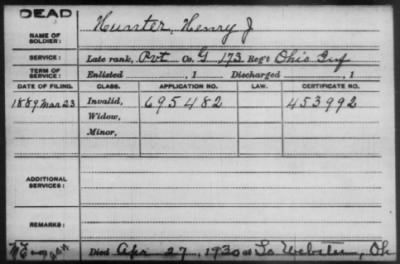 DEAD
NAME OF SOLDIER: Hunter, Henry J
SERVICE: Late rank, Pvt Co. G 173 Reg't Ohio Inf
TERM OF SERVICE: Enlisted , 1 Discharged , 1
DATE OF FILING. CLASS. APPLICATION NO. LAW. CERTIFICATE NO.
1889 Mar 23 Invalid, 695482 453992
Widow,
Minor,
ADDITIONAL SERVICES:
REMARKS:
Died Apr 27, 1930 at So Webster, Oh